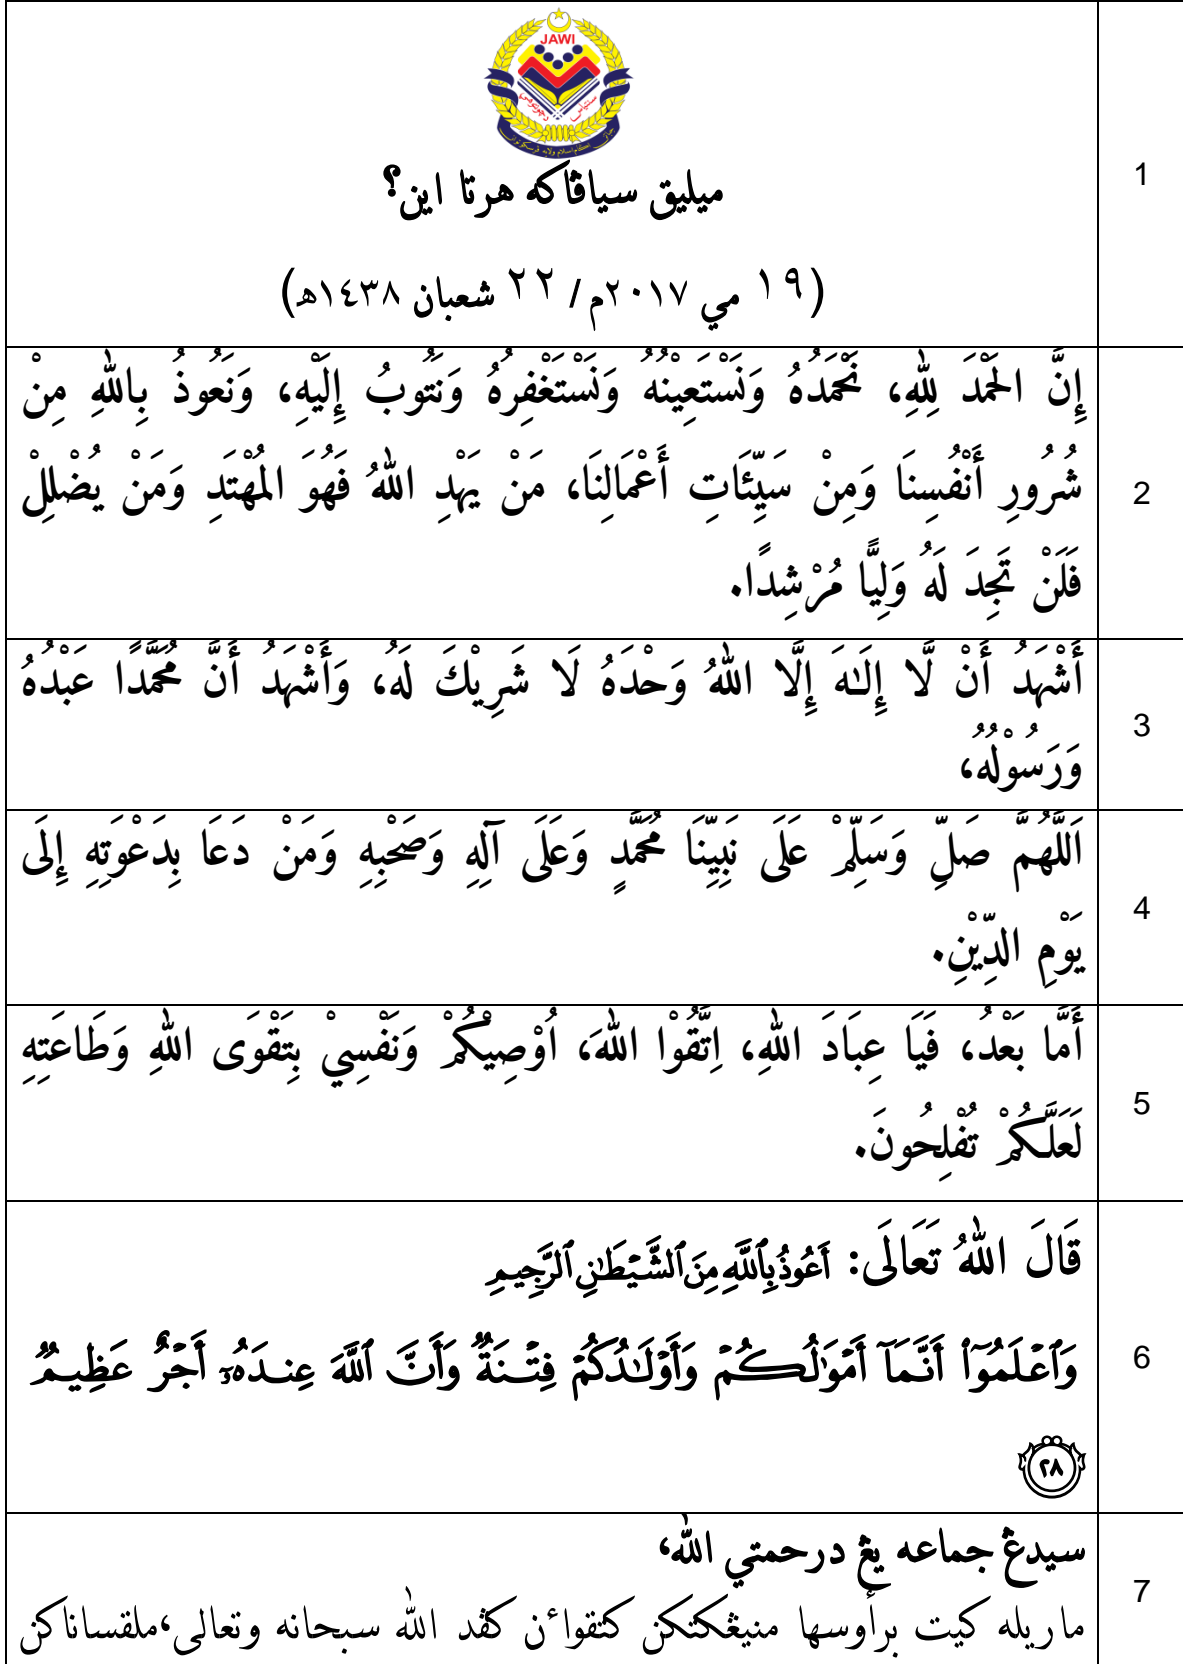 JAWI
ميليق سياڤاكه هرتا اين؟
1
(١٩ مي ٢٠١٧م/ ٢٢ شعبان ١٤٣٨هـ)
إِنَّ الْحَمْدَ لِلّٰهِ، نَحْمَدُهُ وَنَسْتَعِيْنُهُ وَنَسْتَغْفِرُهُ وَنَتُوبُ إِلَيْهِ، وَنَعُوذُ بِاللّٰهِ مِنْ
شُرُورِ أَنْفُسِنَا وَمِنْ سَيِّئَاتِ أَعْمَالِنَا، مَنْ يَهْدِ اللّٰهُ فَهُوَ الْمُهْتَدِ وَمَنْ يُضْلِلْ
2
فَلَنْ تَجِدَ لَهُ وَلِيًّا مُرْشِدًا.
أَشْهَدُ أَنْ لَّا إِلَـٰهَ إِلَّا اللّٰهُ وَحْدَهُ لَا شَرِيْكَ لَهُ، وَأَشْهَدُ أَنَّ مُحَمَّدًا عَبْدُهُ
3
وَرَسُوْلُهُ،
اَللَّهُمَّ صَلِّ وَسَلِّمْ عَلَى نَبِيِّنَا مُحَمَّدٍ وَعَلَى آلِهِ وَصَحْبِهِ وَمَنْ دَعَا بِدَعْوَتِهِ إِلَى
4
يَوْمِ الدِّيْنِ.
أَمَّا بَعْدُ، فَيَا عِبَادَ اللّٰهِ، اِتَّقُوْا اللّٰهَ، أُوْصِيْكُمْ وَنَفْسِيْ بِتَقْوَى اللّٰهِ وَطَاعَتِهِ
5
لَعَلَّكُمْ تُفْلِحُونَ.
قَالَ اللّٰهُ تَعَالَى: أَعُوذُ بِٱللَّهِ مِنَ ٱلشَّيْطَٰنِ ٱلرَّجِيمِ
وَٱعْلَمُوٓا۟ أَنَّمَآ أَمْوَٰلُكُمْ وَأَوْلَٰدُكُمْ فِتْنَةٌ وَأَنَّ ٱللَّهَ عِندَهُۥٓ أَجْرٌ عَظِيمٌ
6
٢٨
سيدڠ جماعه يڠ درحمتي الله،
7
ماريله كيت برأوسها منيڠكتكن كتقواءن كڤد الله سبحانه وتعالى،ملقساناكن